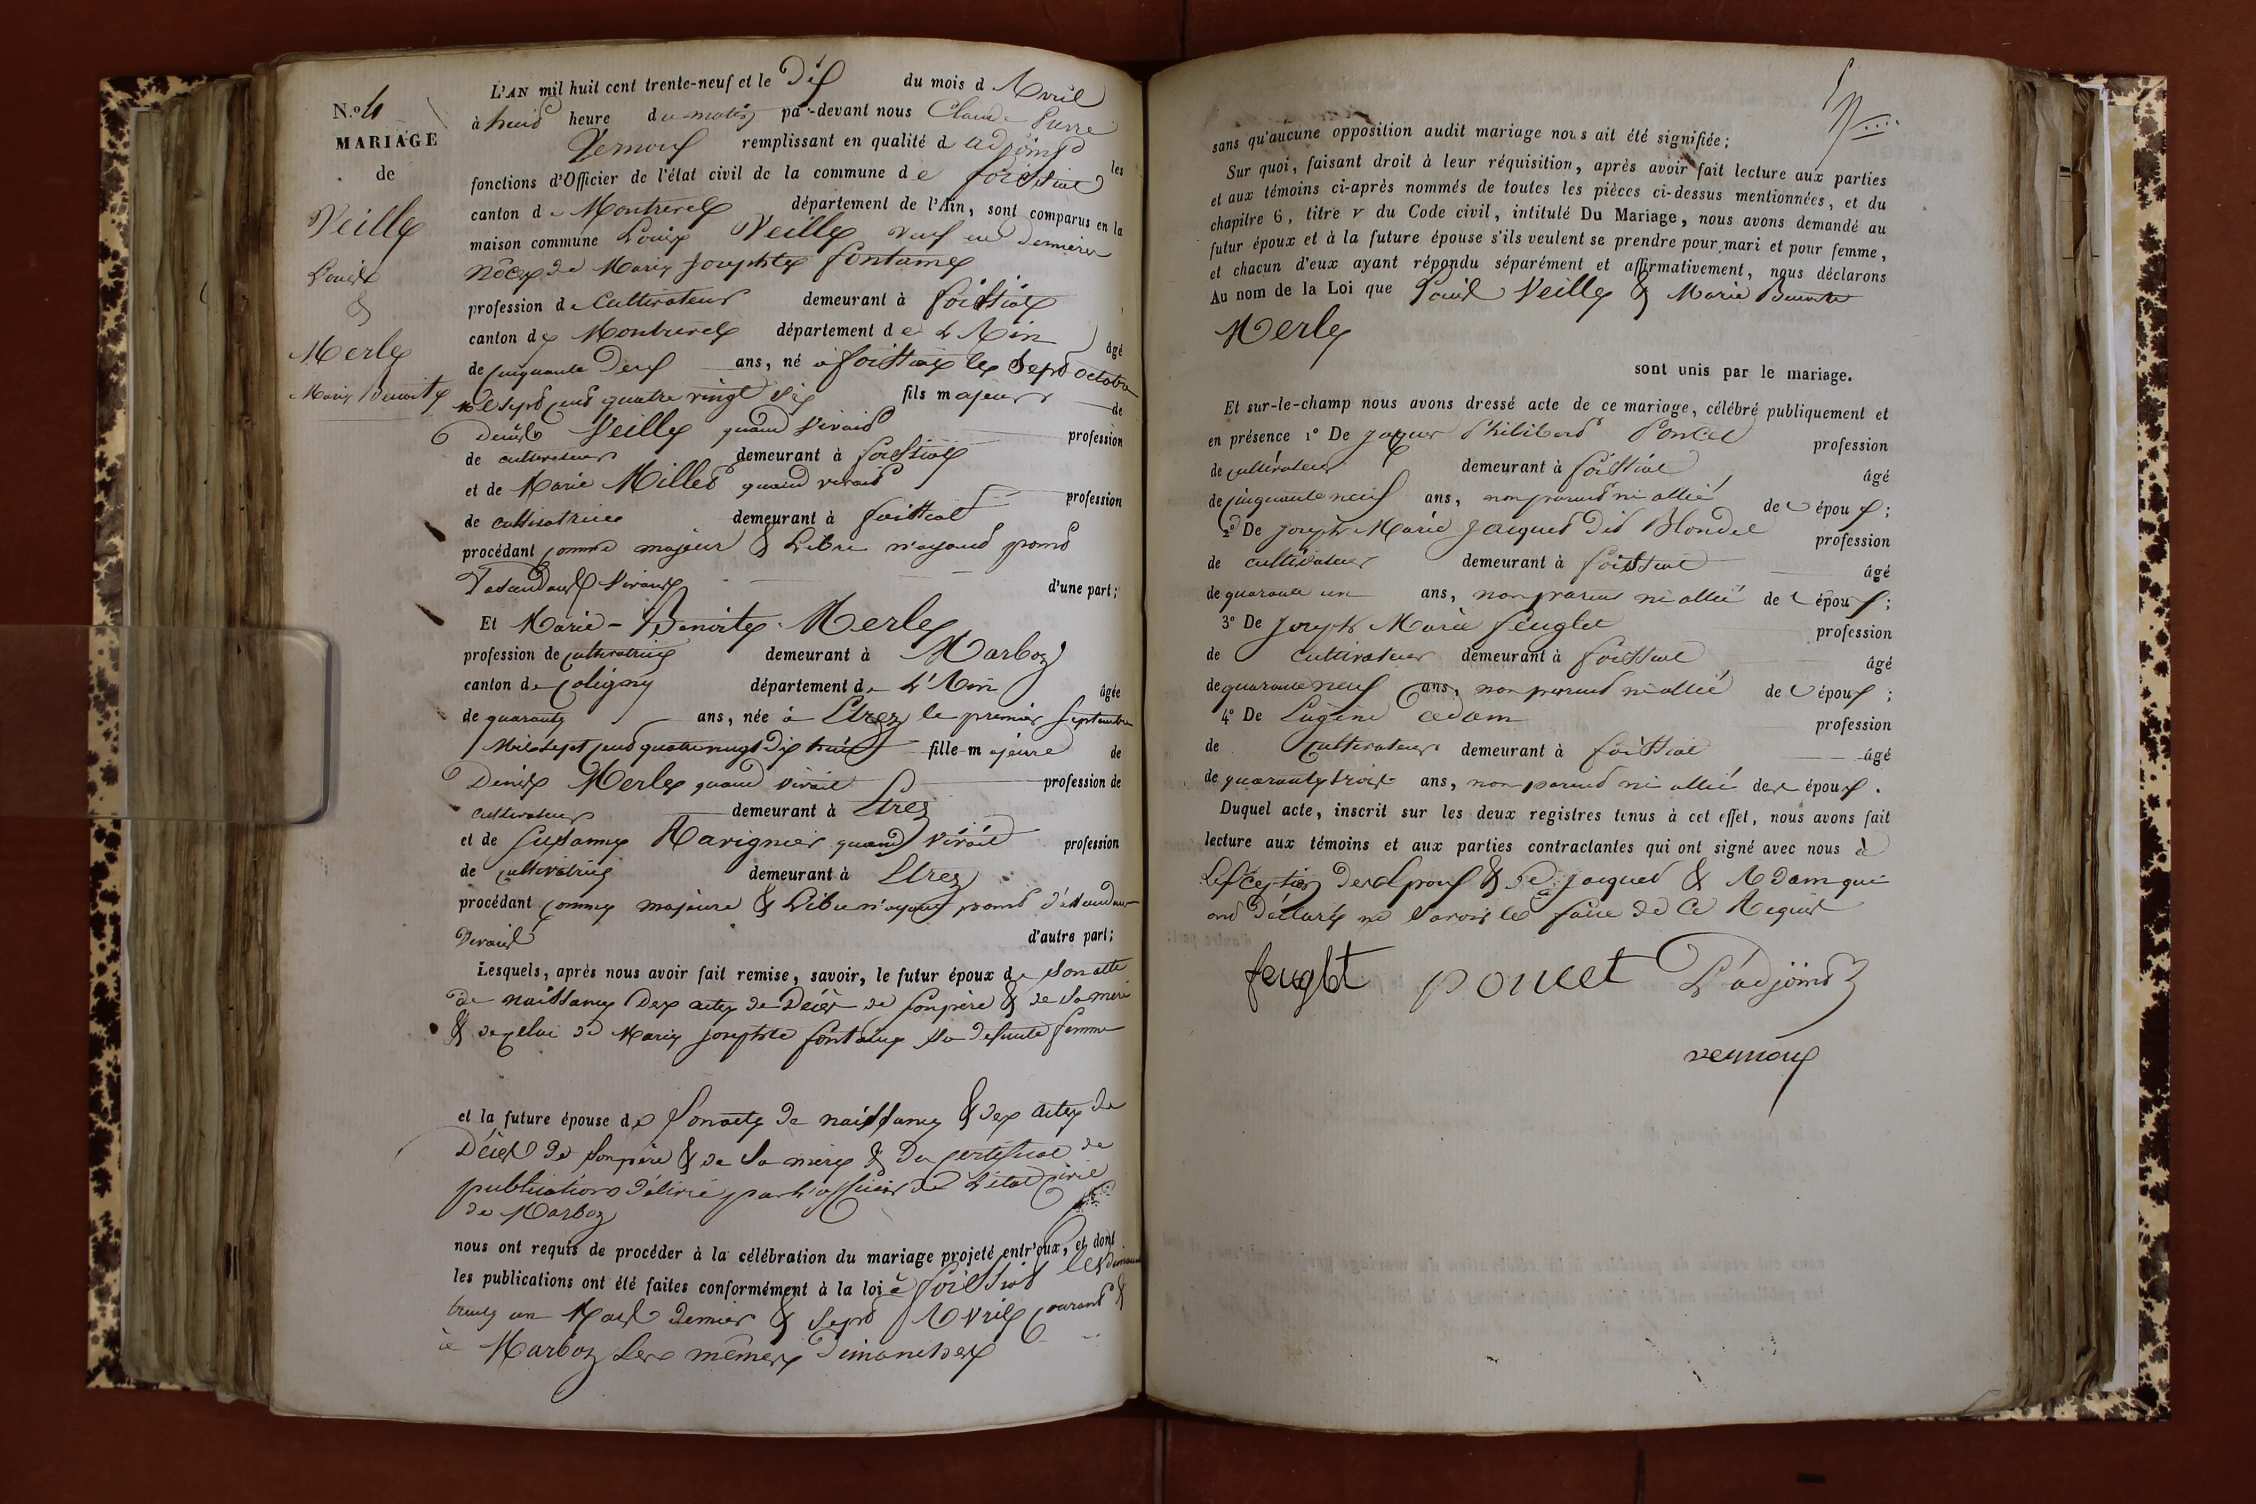 N.o 4
MARIAGE
de
Veille
Louis
&
Merle
Marie Benoite
L'AN mil huit cent trente-neuf et le Dix du mois d Avril
à huit heure du matin par-devant nous Claude Pierre
Vernoux remplissant en qualité d adjoint les
fonctions d'Officier de l'état civil de la commune de foissiat
canton de Montrevel département de l'Ain, sont comparus en la
maison commune Louis Veille veuf en dernière
nôce de Marie Josephte fontaine
profession de Cultivateur demeurant à foissiat
canton de Montrevel département de L'Ain âgé
de cinquante deux ans, né à foissiat le Sept octobre
mil sept cent quatre vingt six fils majeur de
Denis Veille quand vivait profession
de cultivateur demeurant à foissiat
et de Marie Millet quand vivait profession
de cultivatrice demeurant à foissiat
procédant comme majeur & Libre n'ayant point
d'assendants vivants d'une part;
Et Marie-Benoite Merle
profession de cultivatrice demeurant à Marboz
canton de Coligny département de L'Ain âgée
de quarante ans, née à Etrez le premier Septembre
Mil sept cent quatre vingt dix huit fille majeure de
Denis Merle quand vivait profession de
cultivateur demeurant à Etrez
et de Susanne Ravignier quand vivait profession
de cultivatrice demeurant à Etrez
procédant comme majeure & Libre n'ayant point d'assendans
vivant d'autre part;
Lesquels, après nous avoir fait remise, savoir, le futur époux de son acte
de naissance des actes de Décès de son père & de sa mère
& de celui de Marie josephte fontaine sa defunte femme
et la future épouse de son acte de naissance & des actes de
Décès de son père & de sa mère & du certificat de
publications délivré par l'officier de L'état civil
de Marboz
nous ont requis de procéder à la célébration du mariage projeté entr'eux, et dont
les publications ont été faites conformément à la loi à foissiat les dimanches
trente un Mars dernier & sept Avril courant &
à Marboz les mêmes Dimanches
sans qu'aucune opposition audit mariage nous ait été signifiée;
Sur quoi, faisant droit à leur réquisition, après avoir fait lecture aux parties
et aux témoins ci-après nommés de toutes les pièces ci-dessus mentionnées, et du
chapitre 6, titre v du Code civil, intitulé Du Mariage, nous avons demandé au
futur époux et à la future épouse s'ils veulent se prendre pour mari et pour femme,
et chacun d'eux ayant répondu séparément et affirmativement, nous déclarons
Au nom de la Loi que Louis Veille & Marie Benoite
Merle
sont unis par le mariage.
Et sur-le-champ nous avons dressé acte de ce mariage, célébré publiquement et
en présence 1o De Jaques Philibert Poncet profession
de cultivateur demeurant à foissiat âgé
de cinquante neuf ans, non parent ni allié des époux;
2o De Joseph Marie Jacques dit Blondel profession
de cultivateur demeurant à foissiat âgé
de quarante un ans, non parent ni allié des époux;
3o De Joseph Marie feuglet profession
de cultivateur demeurant à foissiat âgé
de quarante neuf ans, non parent ni allié des époux;
4o De Eugène adam profession
de cultivateur demeurant à foissiat âgé
de quarante trois ans, non parent ni allié des époux.
Duquel acte, inscrit sur les deux registres tenus à cet effet, nous avons fait
lecture aux témoins et aux parties contractantes qui ont signé avec nous à
L'exception des Epoux & de jacques & Adam qui
ont déclaré ne savoir le faire de ce Requis
feuglet poncet L'adjoint
vernoux